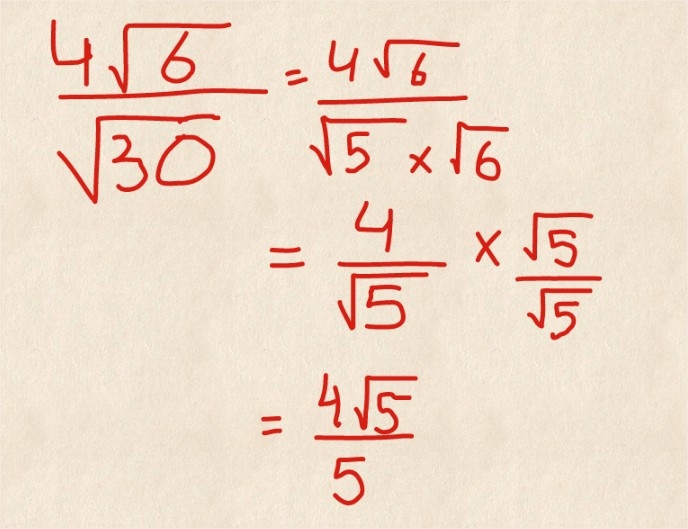 4√6/√30 = 4√6/(√5 × √6)
= 4/√5 × √5/√5
= 4√5/5